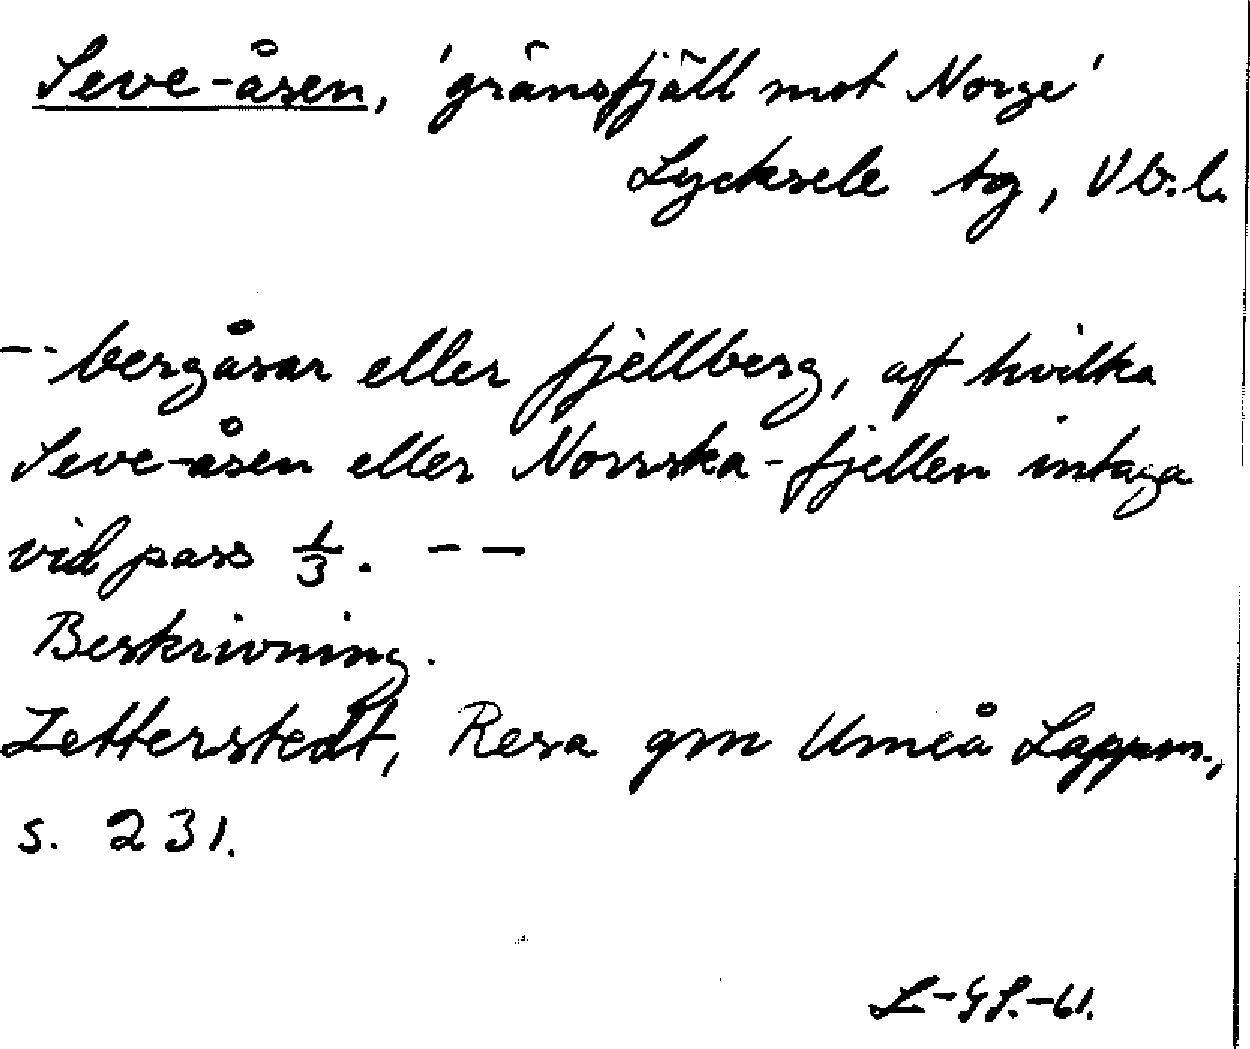 Seve-åsen, 'gränsfjäll mot Norge'
Lycksele tg, Vb.l.
-- bergåsar eller fjellberg, af hvilka
Seve-åsen eller Norrska-fjellen intaga
vid pass 1/3. --
Beskrivning.
Zetterstedt, Resa gm Umeå Lappm.,
s. 231.
L-GS.-61.